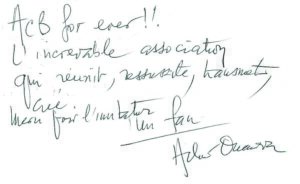 AcB for ever!!
L'incroyable association
qui réunit, ressuscite, transmet,
crée
Merci pour l'invitation
un fan